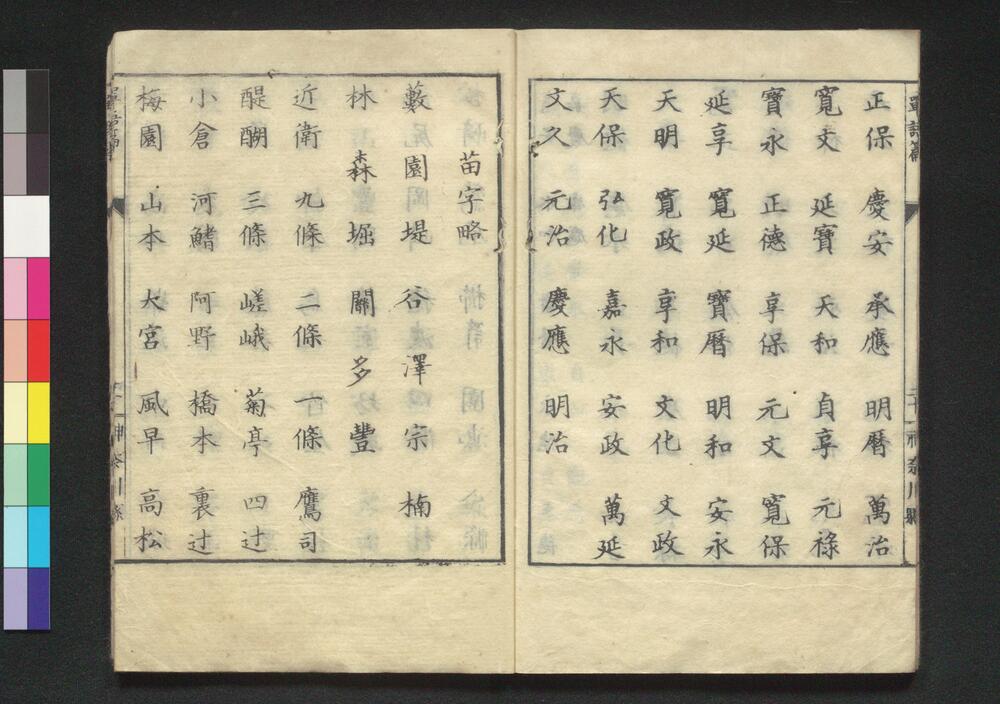 單語篇
正保 慶安 承應 明暦 萬治
寛文 延寶 天和 貞享 元祿
寶永 正德 享保 元文 寛保
延享 寛延 寶暦 明和 安永
天明 寛政 享和 文化 文政
天保 弘化 嘉永 安政 萬延
文久 元治 慶應 明治
神奈川縣
苗字略
藪 園 堤 谷 澤 宗 楠
林 森 堀 關 多 豐
近衛 九條 二條 一條 鷹司
醍醐 三條 嵯峨 菊亭 四辻
小倉 河鰭 阿野 橋本 裏辻
梅園 山本 大宮 風早 高松
單語篇
神奈川縣